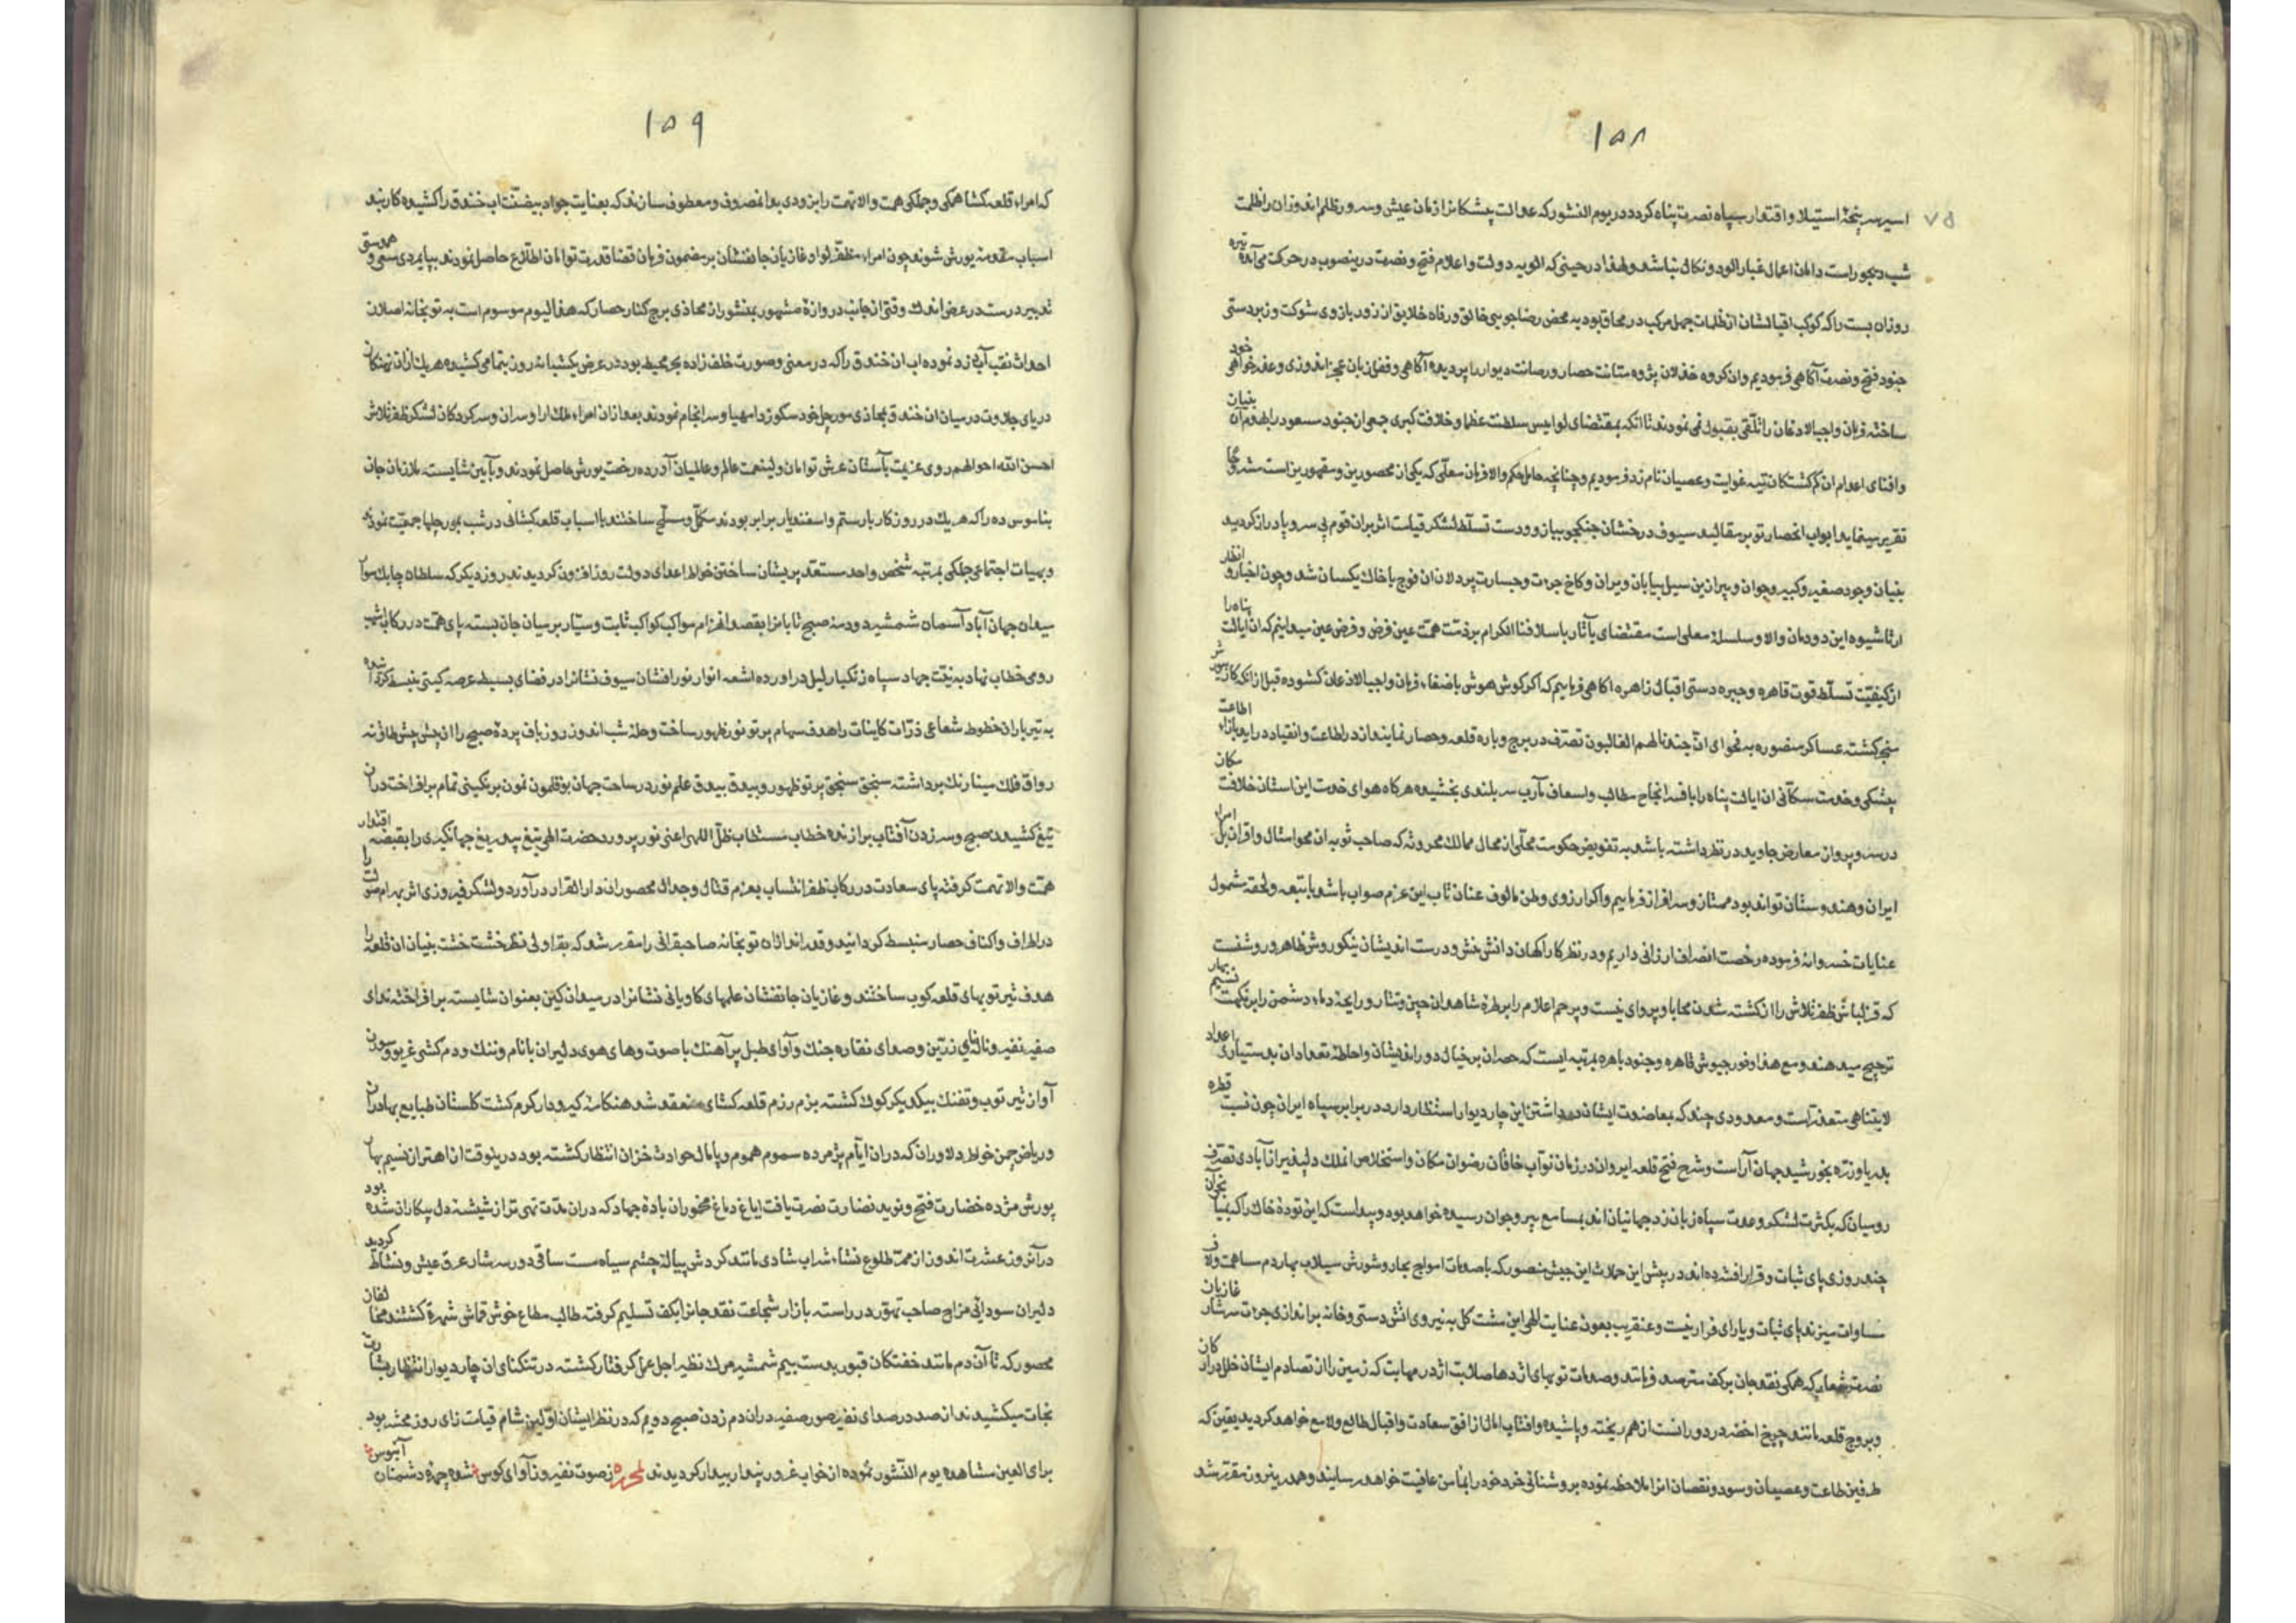 ۱۵۸
اسیر سرپنجهٔ استیلا و اقتدار سپاه نصرت پناه کردد در یوم النشور که عدالت پیشکانرا زمان عیش و سرور ظلم اندوزان را ظلمت
شب دیجور است دامان اعمال غبار الود و نکال نباشد و لهذا در حینی که الویه دولت و اعلام فتح و نصرت درینصوب در حرکت می آمد تیره
روزان بست را که کوکب اقبالشان از ظلمات جهل مرکب در محاق بود به محض رضاجویی خالق و رفاه خلایق ان زور بازوی شوکت و زبردستی
جنود فتح و نصرت آکاهی فرمودیم وان کروه خذلان پژوه متانت حصار و رصانت دیوار را پردیده آکاهی و قفل زبان عجز اندوزی و عذرخواهی خود
ساخته فرمان واجب الاذعان را تلقی بقبول نمی نمودند تا انکه بمقتضای لوامیس سلطنت عظما و خلافت کبری جمعی از جنود مسعود را بهدم ان بنیان
و افنای اعدام ان کم کشتکان تیه غوایت و عصیان نامزد فرمودیم و چنانچه حامل حکم والا فرمان معلی که یکی از محصورین و مقهورین است مشروحا
تقریر مینماید ابواب انحصار تو بر مقالید سیوف درخشان جنکجو بیاز و دست تسلط لشکر قیامت اثر بران قوم بی سر و پا دراز کردید
بنیان وجود صغیر و کبیر و جوان و پیر ان بن سیل بیابان ویران و کاخ جرءت و جسارت پر دلان ان فوج با خاک یکسان شد و چون اخبار و انظار
ارثا شیوه این دودمان والا و سلسلهٔ معلی است مقتضای بآثار باسلافنا الکرام بر ذمت همت عین فرض و فرض عین میدانیم که ان ایالت پناه را
از کیفیت تسلط قوت قاهره و چیره دستی اقبال زاهره اکاهی فرماییم که اکر کوش هوش باصغاء فرمان واجب الاذعان کشوده قبل از انکه کار به یورش
منجر کشته عساکر منصوره به فحوای ان جندنا لهم الغالبون تصرف در برج و باره قلعه و حصار نمایند اندر اطاعت و انقیاد در اید بازاء اطاعت
پیشکی و خدمت سکالی ان ایالت پناه را بافسر انجاح مطالب و اسعاف مآرب سر بلندی بخشیده هرکاه هوای خدمت این استان خلافت مکان
در سر و پروان معارض جاوید در نظر داشته باشد به تفویض حکومت محلی از محال ممالک محروسه که صاحب ثوبه ان محو امثال و اقران بل امرای
ایران و هندوستان تواند بود ممتاز و سرافراز فرماییم و اکر ارزوی وطن مالوف عنان تاب این عزم صواب باشد با تبعه و لحقه مشمول
عنایات خسروانه فرموده رخصت انصراف ارزانی داریم و در نظر کار آکهان دانش منش و درست اندیشان نیکو روش ظاهر و روشنست
که قزلباش ظفر تلاش را از کشته شدن محابا و پروای نیست و پرچم اعلام را بر طره شاهدان چین و تتار و رایحه دماء دشمن را بر نکهت نسیم بهار
ترجیح میدهند و مع هذا وفور جیوش قاهره و جنود باهره بمرتبه ایست که حصران بر خیال دوراندیشان و احاطهٔ تعداد ان بدستیاری اعداد
لایتناهی متعذر است و معدودی چند که بمعاضدت ایشان در داشتن این چار دیوار استظهار دارد در برابر سپاه ایران چون نسبت قطره
بدریا و ذره بخورشید جهان آراست و شرح فتح قلعه ایروان در زمان نواب خاقان رضوان مکان و استخلاص انملک دلپذیر از آبادی تصرف
رومیان که بکثرت لشکر و عدت سپاه زبان زد جهانیان اند بمسامع پیر و جوان رسیده خواهد بود و پیداست که این تودهٔ خاک را که بنیان
چند روزی پای ثبات و قرار افشرده اند در پیش این حملات این جیش منصور که با صدمات امواج بحار و شورش سیلاب بهار دم مساهمت و لاف
مساوات میزند پای ثبات و یارای قرار نیست و عنقریب بعون عنایت الهی این مشت کل به نیروی اتش دستی و خانه براندازی جرءت سرشار غازیان
نصرت شعار که همکی نقد جان بر کف مترصد فرمانند و صدمات توبهای اژدها صلابت اژدر مهابت که زمین را از تصادم ایشان خلل در ارکان
و بروج قلعه مانند چرخ اخضر در دوران است از هم ریخته و پاشیده و افتاب امال از افق سعادت و اقبال طالع و لامع خواهد کردید یقین که
طرفین طاعت و عصیان و سود و نقصان انرا ملاحظه نموده بروشنائی خرد خود را بمامن عافیت خواهد رسانید و همدرینروز مقرر شد
۱۵۹
که امراء قلعه کشا همکی و جملکی همت والا نهمت را بزودی بدانمصروف و معطوف سازند که بعنایت جواد بیضنت اب خندق را کشیده کاربند
اسباب مقدمه یورش شوند چون امراء مظفر لوا و غازیان جانفشان بر مضمون فرمان قضا قدرت توامان اطلاع حاصل نمودند بپایمردی سعی و
تدبیر درست در عرض اندک وقتی از جانب دروازهٔ مشهور بمنشوران محاذی برج کنار حصار که هذالیوم موسوم است به توبخانه اصلان
احداث نقب آب دزد نموده اب ان خندق را که در معنی و صورت خلف زاده بحر محیط بود در عرض یکشبانه روز بتمامی کشیده هریک از ان نهنکان
دریای جلادت در میان ان خندق بمحاذی مورچل خود سکوزدا مهیا و سرانجام نمودند بعد از ان امراء ملک ارا و سران و سرکردکان لشکر ظفر تلاش
احسن الله احوالهم روی عزیمت بآستان عرش توامان ولینعمت عالم و عالمیان آورده رخصت یورش حاصل نمودند و بآیین شایسته ملازمان جان
بناموس ده را که هریک در روزکار با رستم و اسفندیار برابر بودند مکمل و مسلح ساخته با اسباب قلعه کشائی در شب بمورچلها جمعیت نمودند
و بهیات اجتماعی جملکی بمرتبه شخص واحد مستعد پریشان ساختن خواطر اعدای دولت روزافزون کردیدند روز دیکر که سلطان چابک سوار
میدان جهان آباد آسمان شمشیر دودمه صبح تابانرا بقصد انهزام مواکب کواکب ثابت و سیار بر میان جان بسته پای همت در رکاب اشهب
روی خطاب نهاد به نیت جهاد سپاه زنکبار لیل در اورده اشعه انوار نورافشان سیوف نشانرا در فضای بسیط عرصه کیتی منبسط کردانیده
به تیرباران خطوط شعاعی ذرات کاینات را هدف سهام پرتو نور ظهور ساخت و حله شب اندوز روزباف پردهٔ صبح را از پیش پیش طاق نه
رواق فلک مینا رنک برداشته سنجق سنجق پرتو ظهور و بیدق بیدق علم نور در ساحت جهان بوقلمون نمون برنکینی تمام برافراخت در ان
تیغ کشیدن صبح و سر زدن آفتاب برازنده خطاب مستطاب ظل اللهی اعنی نورپرورد حضرت الهی تیغ بیدریغ جهانکیری را بقبضه اقتدار
همت والا نهمت کرفته پای سعادت در رکاب ظفر انتساب بعزم قتال و جدال محصوران دارالقرار در آورد و لشکر فیروزی اثر بهرام صولت را
در اطراف و اکناف حصار منبسط کردانید و قدراندازان توبخانه صاحبقرانی را مقرر شد که بقراولی نظر خشت خشت بنیان ان قلعه را
هدف تیر توبهای قلعه کوب ساختند و غازیان جانفشان علمهای کاویانی نشانرا در میدان کین بعنوان شایسته برافراختند صدای
صفیر نفیر و نالهٔ نای زرین و صدای نقاره جنک و آوای طبل پرآهنک با صوت و های هوی دلیران با نام و ننک و دم کشی غریو و سورن
آواز تیر توب و تفنک بیکدیکر کوک کشته بزم رزم قلعه کشای منعقد شد هنکامهٔ کیرودار کرم کشت کلستان طبایع بهادران
و ریاض چمن خواطر دلاوران که دران ایام پژمرده سموم هموم و پامال حوادث خزان انتظار کشته بود درینوقت از اهتزاز نسیم بهار
یورش مژده خضارت فتح و نوید نضارت نصرت یافت ایاغ دماغ مخموران بادهٔ جهاد که دران مدت تهی تر از شیشهٔ دل بیکاران شده بود
درآنروز عشرت اندوز از ممر طلوع نشاء شراب شادی مانند کردش پیالهٔ چشم سیاه مست ساقی دور سرشار عرق عیش و نشاط کردید
دلیران سودائی مزاج صاحب تهور در راسته بازار شجاعت نقد جانرا بکف تسلیم کرفته طالب مطاع خوش قماش شهرة کشتند مخالفان
محصور که تا آن دم مانند خفتکان قبور بدست بیم شمشیر مرک نظیر اجل عمل کرفتار کشته در تنکنای ان چار دیوار انتظار بشارت
نجات میکشیدند از صدر صدای نفیر صور صفیر دران دم زدن صبح دویم که در نظر ایشان اولین شام قیامت زای روز محشر بود
برای العین مشاهده یوم النشور نموده از خواب غرور پندار بیدار کردیدند لمحرره ز صوت نفیر و ز آوای کوس شده چهرهٔ دشمنان آبنوس